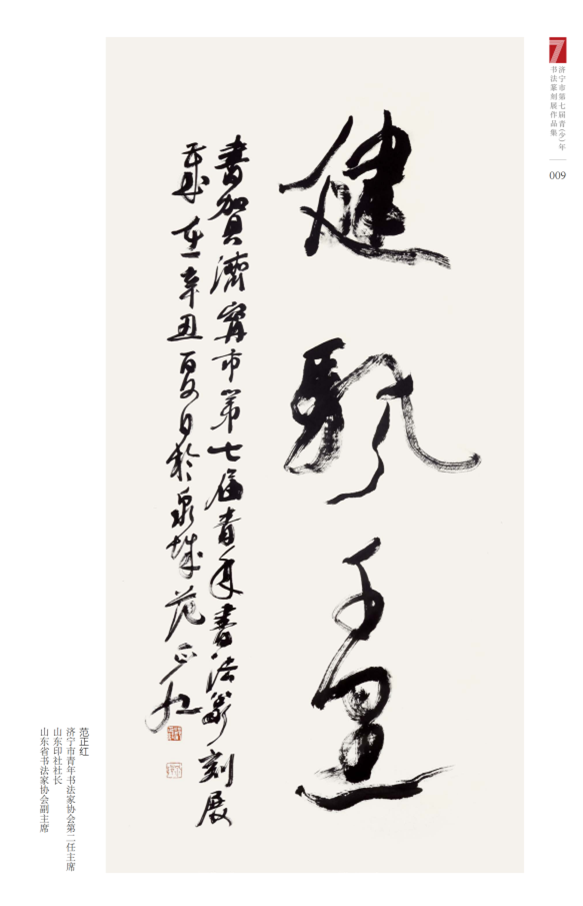 7
济宁市第七届青(少)年
书法篆刻展作品集
009
健 千里
書賀濟寧市第七届青年書法篆刻展
歲在辛丑夏日於泉城范正红
范正红
济宁市青年书法家协会第二任主席
山东印社社长
山东省书法家协会副主席